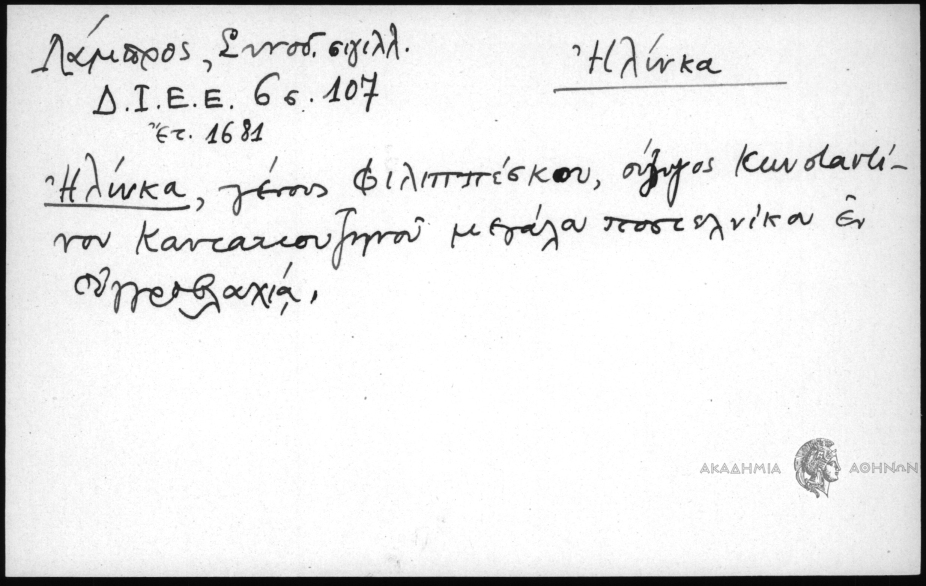 Λάμπρος, Συνοδ. σιγιλλ.
Ἡλίνκα
Δ.Ι.Ε.Ε. 6 σ. 107
Ἔτ. 1681
Ἡλίνκα, γένους Φιλιππέσκου, σύζυγος Κωνσταντί-
νου Καντακουζηνοῦ μεγάλα ποστελνίκα ἐν
Οὐγγροβλαχίᾳ.
ΑΚΑΔΗΜΙΑ ΑΘΗΝΩΝ